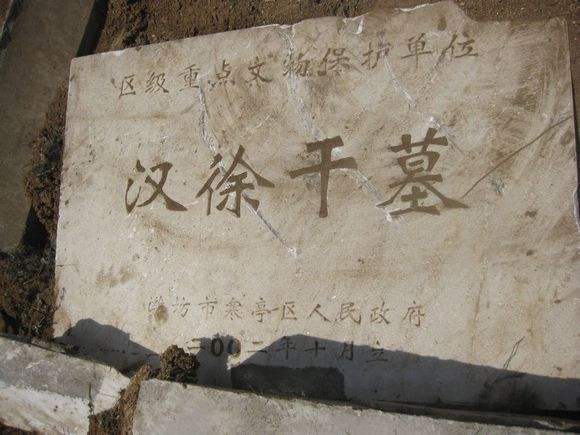 区级重点文物保护单位
汉徐干墓
潍坊市寒亭区人民政府
二00二年十月立